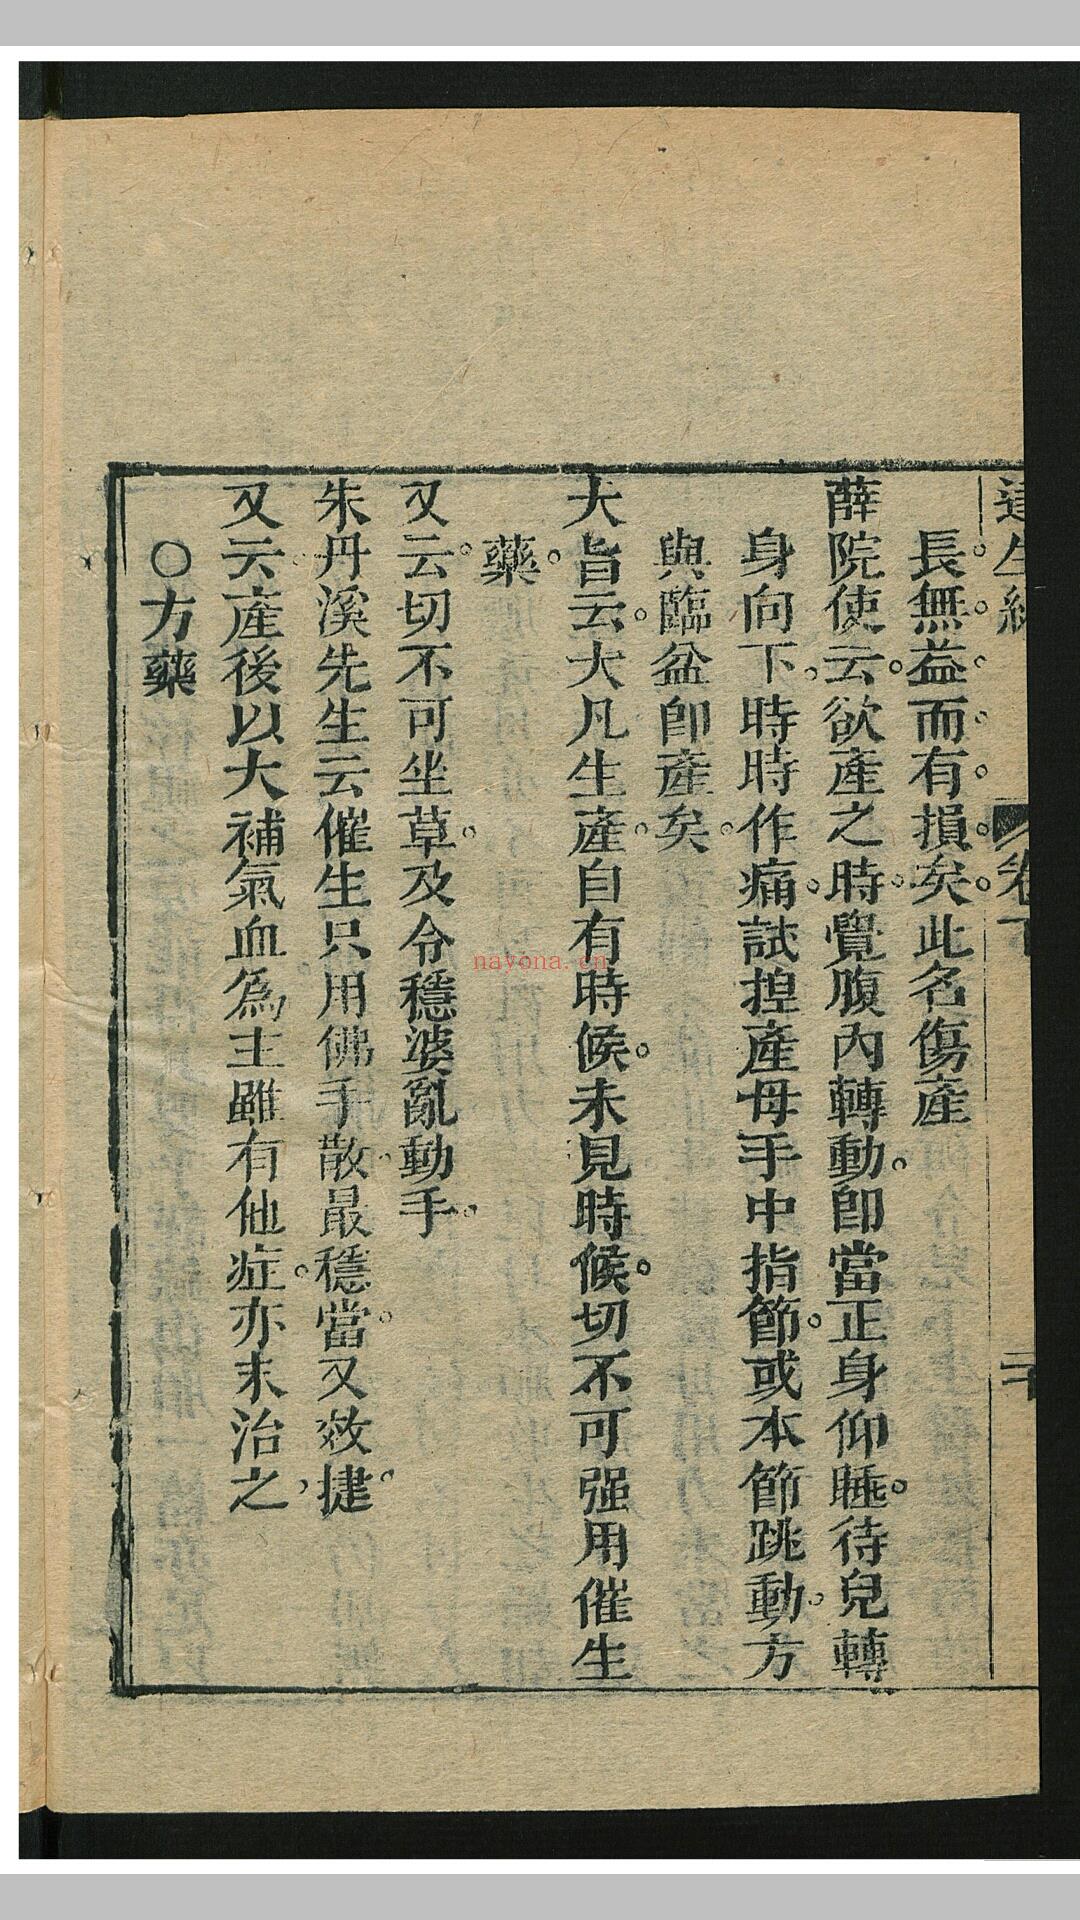 達生編 卷下 二十
長無益而有損矣此名傷產
薛院使云欲產之時覺腹內轉動卽當正身仰睡待兒轉
身向下時時作痛試揑產母手中指節或本節跳動方
與臨盆卽產矣
大旨云大凡生產自有時候未見時候切不可强用催生
藥
又云切不可坐草及令穩婆亂動手
朱丹溪先生云催生只用佛手散最穩當又效捷
又云產後以大補氣血為主雖有他症亦末治之
○方藥
nayona.cn